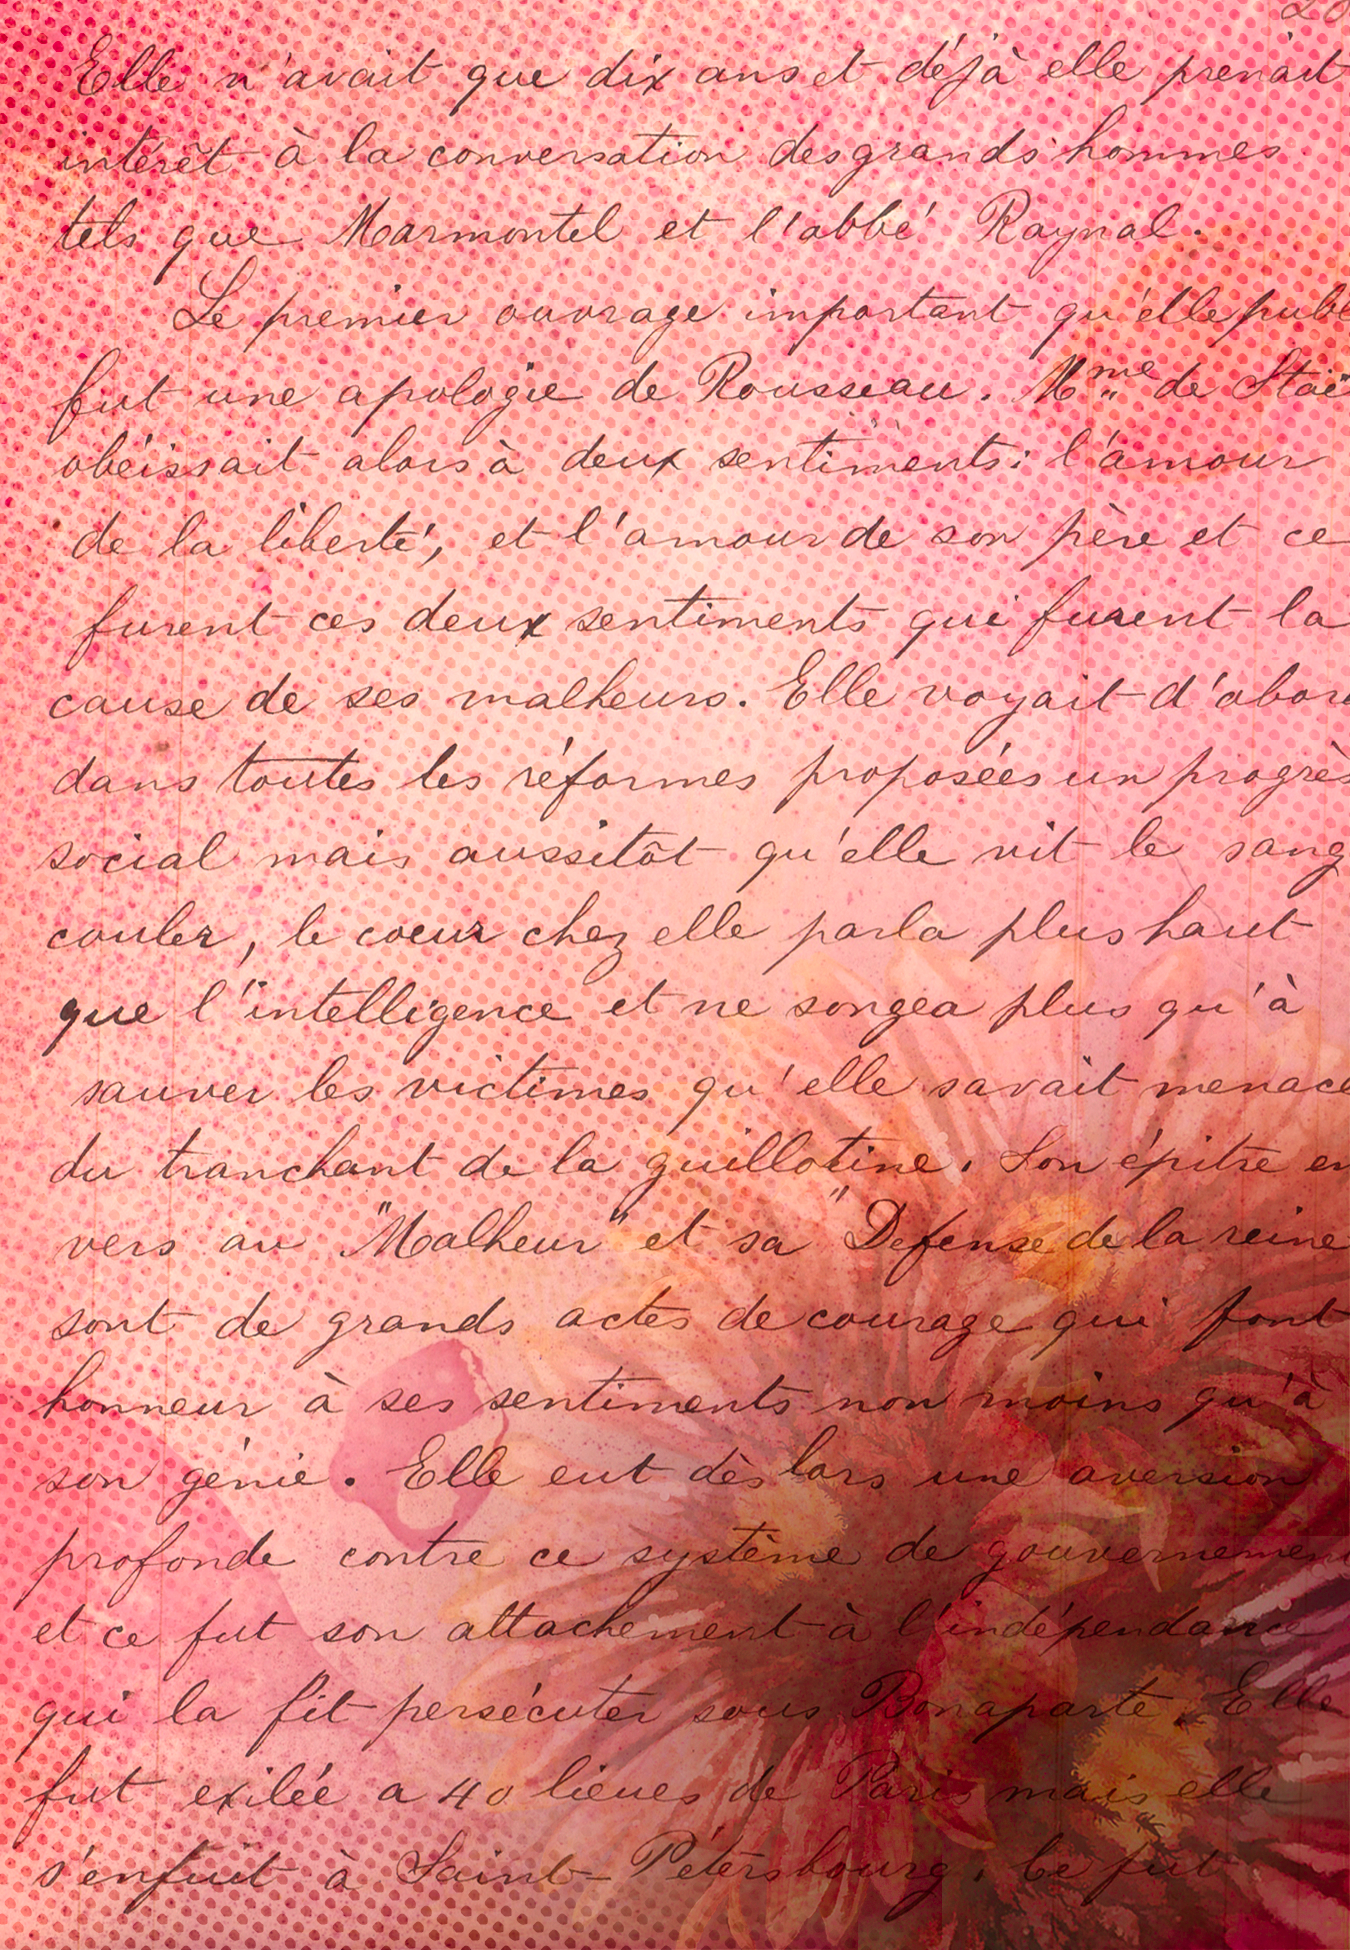 20
Elle n'avait que dix ans et déjà elle prenait
intérêt à la conversation des grands hommes
tels que Marmontel et l'abbé Raynal.
Le premier ouvrage important qu'elle publ
fut une apologie de Rousseau. Mme de Staë
obéissait alors à deux sentiments: l'amour
de la liberté, et l'amour de son père et ce
furent ces deux sentiments qui furent la
cause de ses malheurs. Elle voyait d'abor
dans toutes les réformes proposées un progrès
social mais aussitôt qu'elle vit le sang
couler, le coeur chez elle parla plus haut
que l'intelligence et ne songea plus qu'à
sauver les victimes qu'elle savait menacé
du tranchant de la guillotine. Son épitre en
vers au "Malheur" et sa "Défense de la reine
sont de grands actes de courage qui font
honneur à ses sentiments non moins qu'à
son génie. Elle eut dès lors une aversion
profonde contre ce système de gouvernemen
et ce fut son attachement à l'indépendance
qui la fit persécuter sous Bonaparte. Elle
fut exilée a 40 lieues de Paris mais elle
s'enfuit à Saint-Pétersbourg. Ce fut